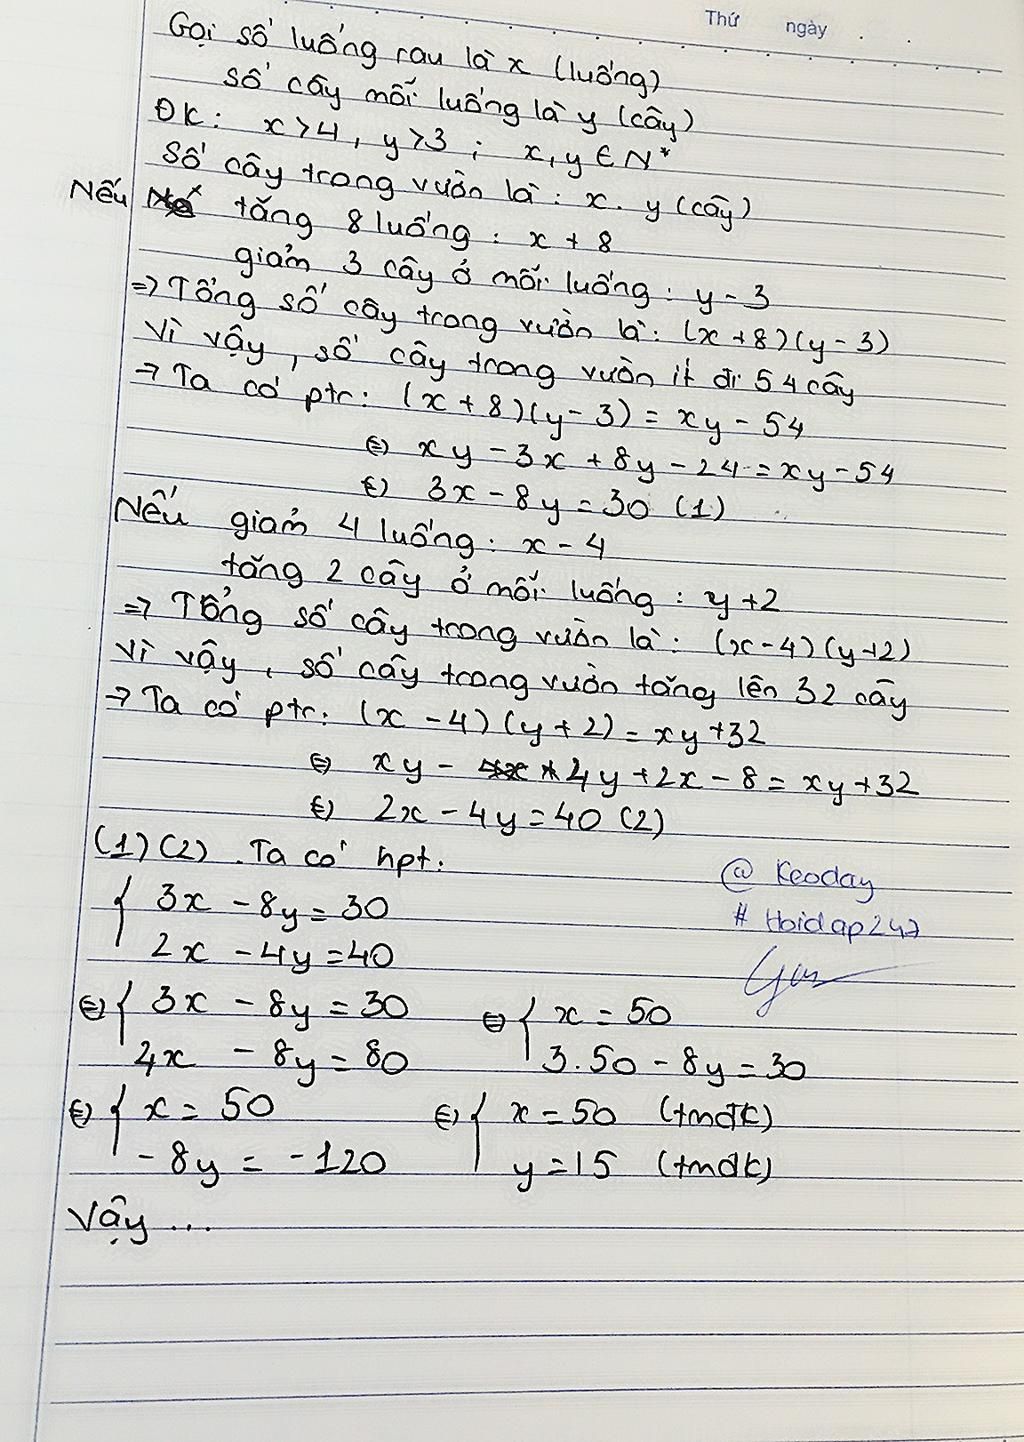 Thứ ngày
Gọi số luống rau là x (luống)
số cây mỗi luống là y (cây)
ĐK: x>4, y>3; x,y ∈ N*
Số cây trong vườn là: x.y (cây)
Nếu tăng 8 luống: x + 8
giảm 3 cây ở mỗi luống: y - 3
=> Tổng số cây trong vườn là: (x+8)(y-3)
Vì vậy, số cây trong vườn ít đi 54 cây
-> Ta có ptr: (x+8)(y-3) = xy - 54
<=> xy - 3x + 8y - 24 = xy - 54
<=> 3x - 8y = 30 (1)
Nếu giảm 4 luống: x - 4
tăng 2 cây ở mỗi luống: y+2
=> Tổng số cây trong vườn là: (x-4)(y+2)
Vì vậy, số cây trong vườn tăng lên 32 cây
-> Ta có ptr: (x-4)(y+2) = xy+32
<=> xy - 4y + 2x - 8 = xy + 32
<=> 2x - 4y = 40 (2)
(1)(2). Ta có hpt:
@ Keoday
{ 3x - 8y = 30
# Hoidap247
2x - 4y = 40
<=> { 3x - 8y = 30 <=> { x = 50
4x - 8y = 80 3.50 - 8y = 30
<=> { x = 50 <=> { x = 50 (tmđk)
-8y = -120 y = 15 (tmđk)
Vậy ...